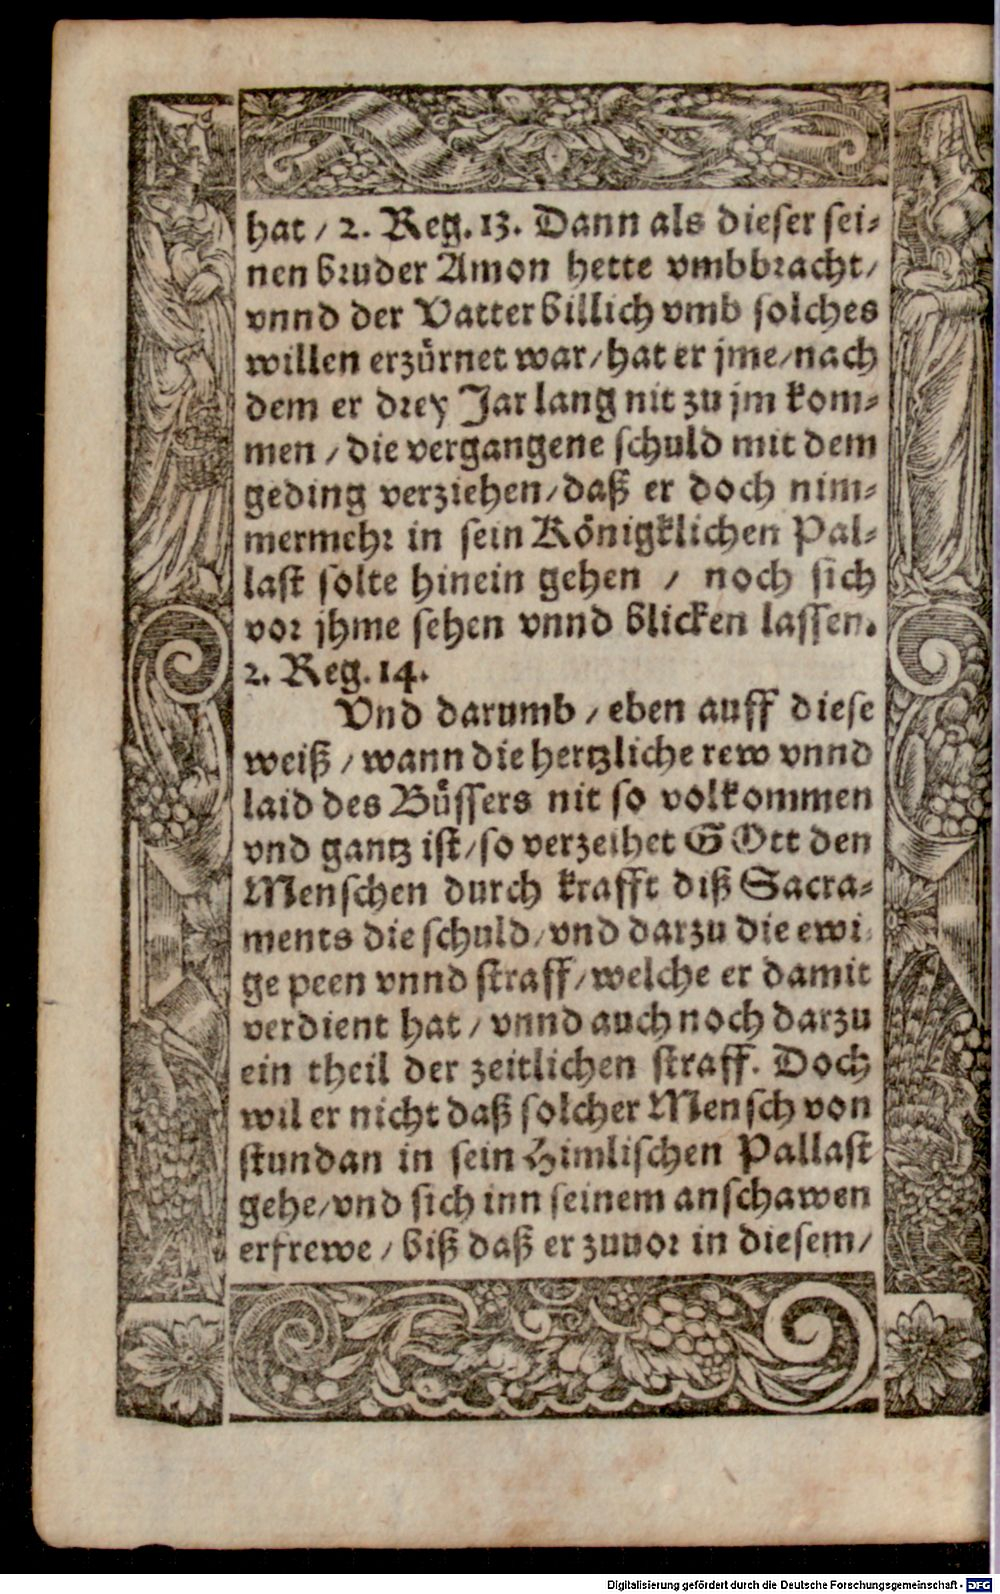 hat / 2. Reg. 13. Dann als dieser sei⸗
nen bruder Amon hette vmbbracht /
vnnd der Vatter billich vmb solches
willen erzürnet war / hat er jme / nach
dem er drey Jar lang nit zu jm kom⸗
men / die vergangene schuld mit dem
geding verziehen / daß er doch nim⸗
mermehr in sein Königklichen Pal⸗
last solte hinein gehen / noch sich
vor jhme sehen vnnd blicken lassen.
2. Reg. 14.
Vnd darumb / eben auff diese
weiß / wann die hertzliche rew vnnd
laid des Büssers nit so volkommen
vnd gantz ist / so verzeihet GOtt den
Menschen durch krafft diß Sacra⸗
ments die schuld / vnd darzu die ewi⸗
ge peen vnnd straff / welche er damit
verdient hat / vnnd auch noch darzu
ein theil der zeitlichen straff. Doch
wil er nicht daß solcher Mensch von
stundan in sein Himlischen Pallast
gehe / vnd sich inn seinem anschawen
erfrewe / biß daß er zuuor in diesem /
Digitalisierung gefördert durch die Deutsche Forschungsgemeinschaft - DFG